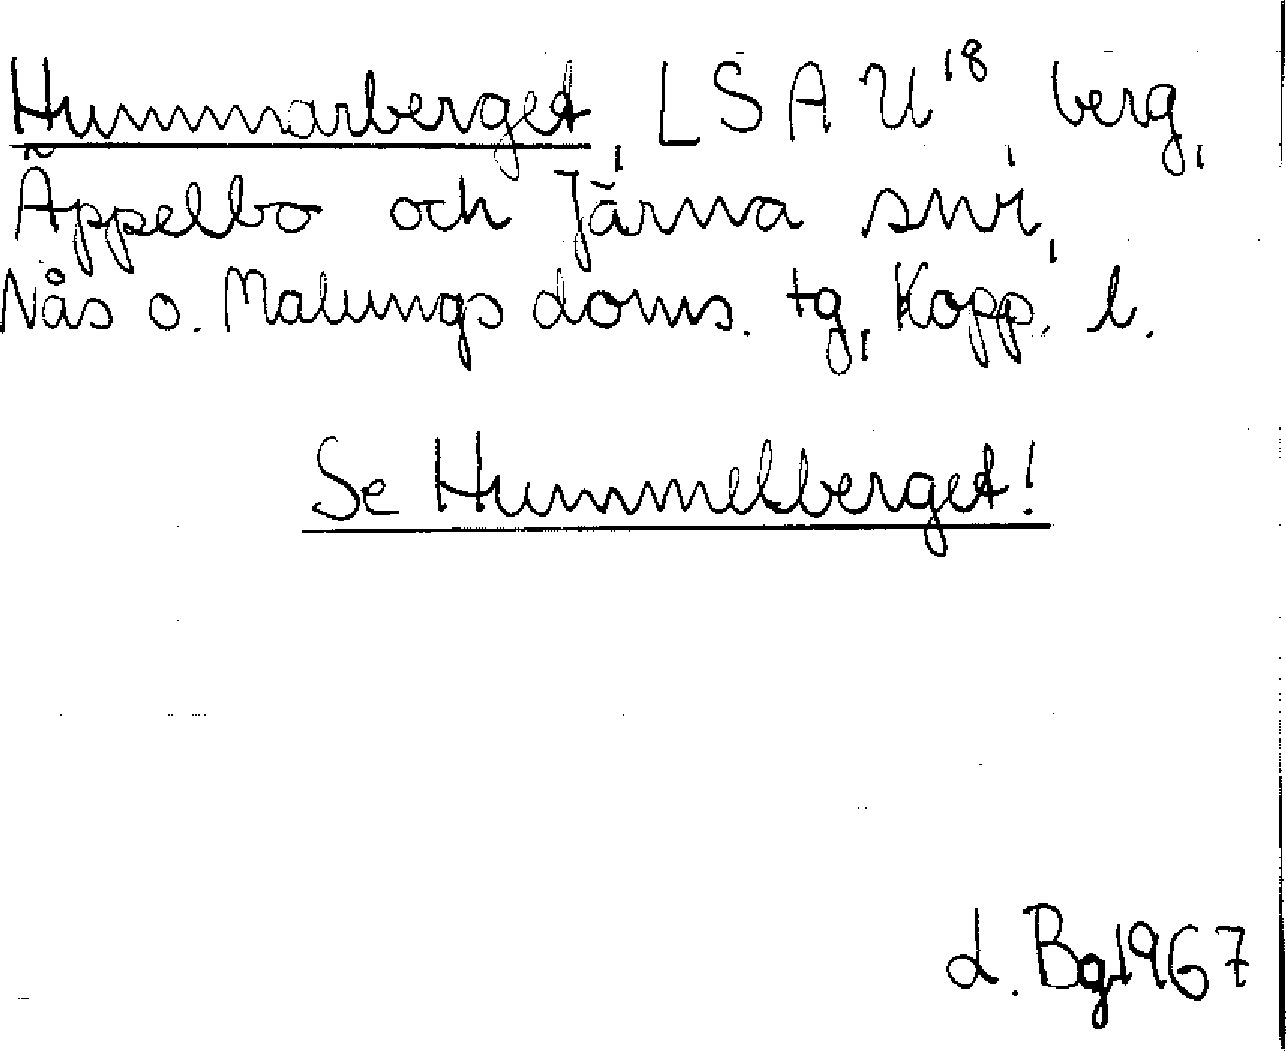 Hummarberget, LSA U¹⁸ berg,
Äppelbo och Järna snr,
Nås o. Malungs doms. tg, Kopp. l.
Se Hummelberget!
L. Bg 1967